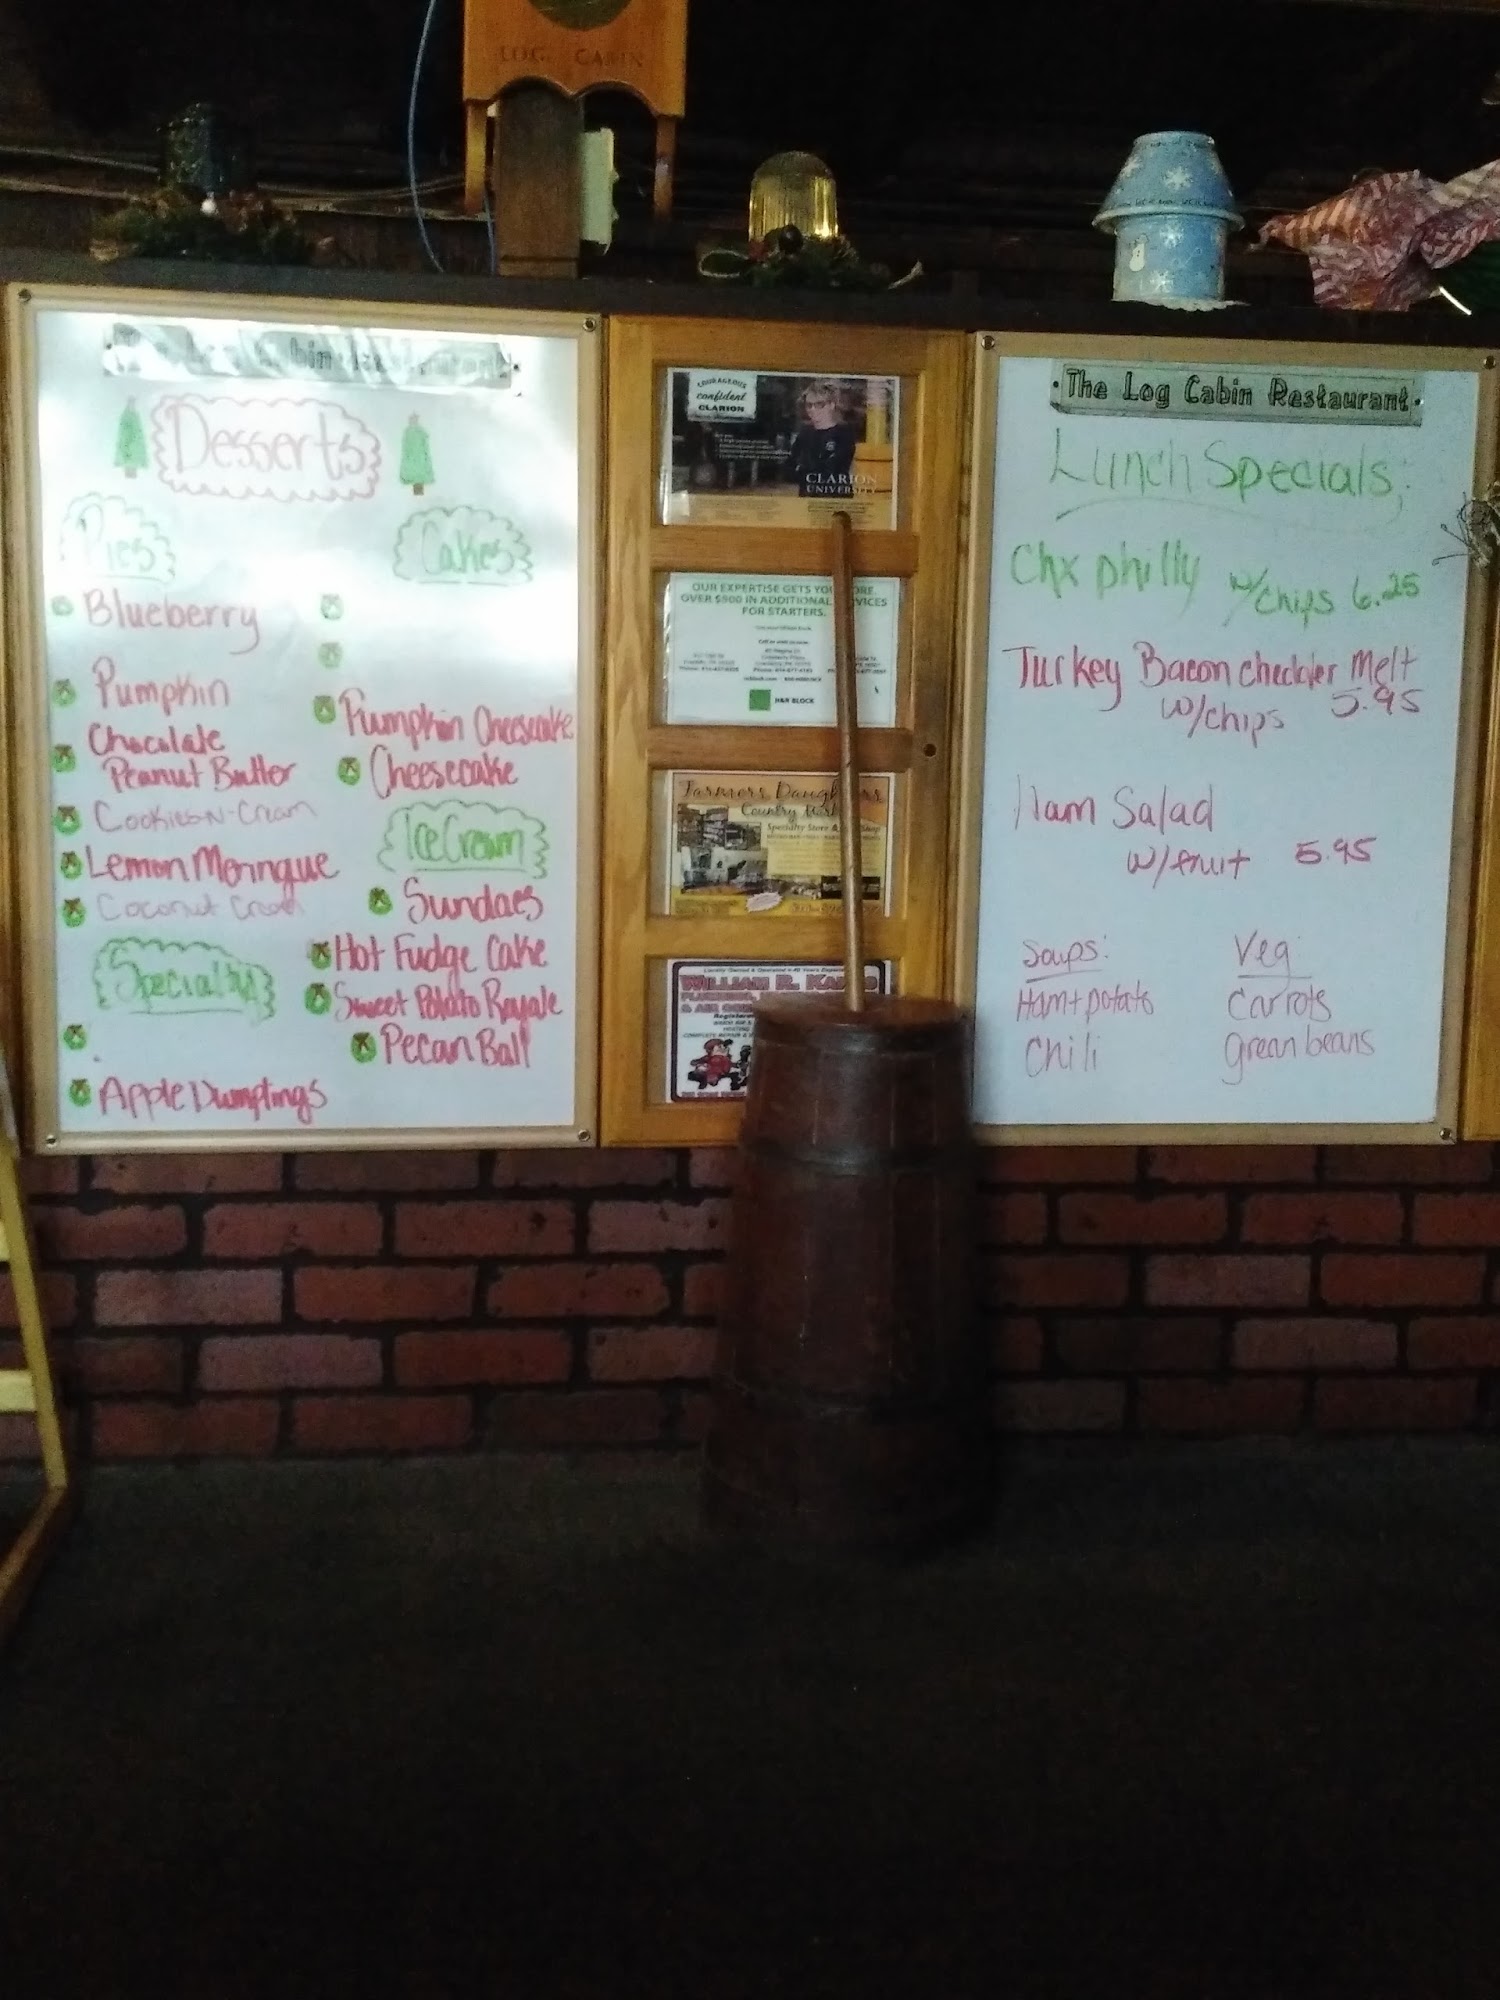 LOG CABIN
The Log Cabin Restaurant
Desserts
Pies
Blueberry
Pumpkin
Chocolate
Peanut Butter
Cookies-N-Cream
Lemon Meringue
Coconut Cream
Cakes
Pumpkin Cheesecake
Cheesecake
Ice Cream
Sundaes
Specialtys
Hot Fudge Cake
Sweet Potato Royale
Pecan Ball
Apple Dumplings
COURAGEOUS
confident
CLARION
CLARION
UNIVERSITY
OUR EXPERTISE GETS YOU
OVER $500 IN ADDITIONAL
FOR STARTERS.
H&R BLOCK
Farmers Daughters
Country
Specialty Store
WILLIAM R.
The Log Cabin Restaurant
Lunch Specials;
Chx philly w/chips 6.25
Turkey Bacon cheddar Melt
w/chips 5.95
Ham Salad
w/fruit 5.95
Soups:
Ham+potato
Chili
Veg
Carrots
Green beans